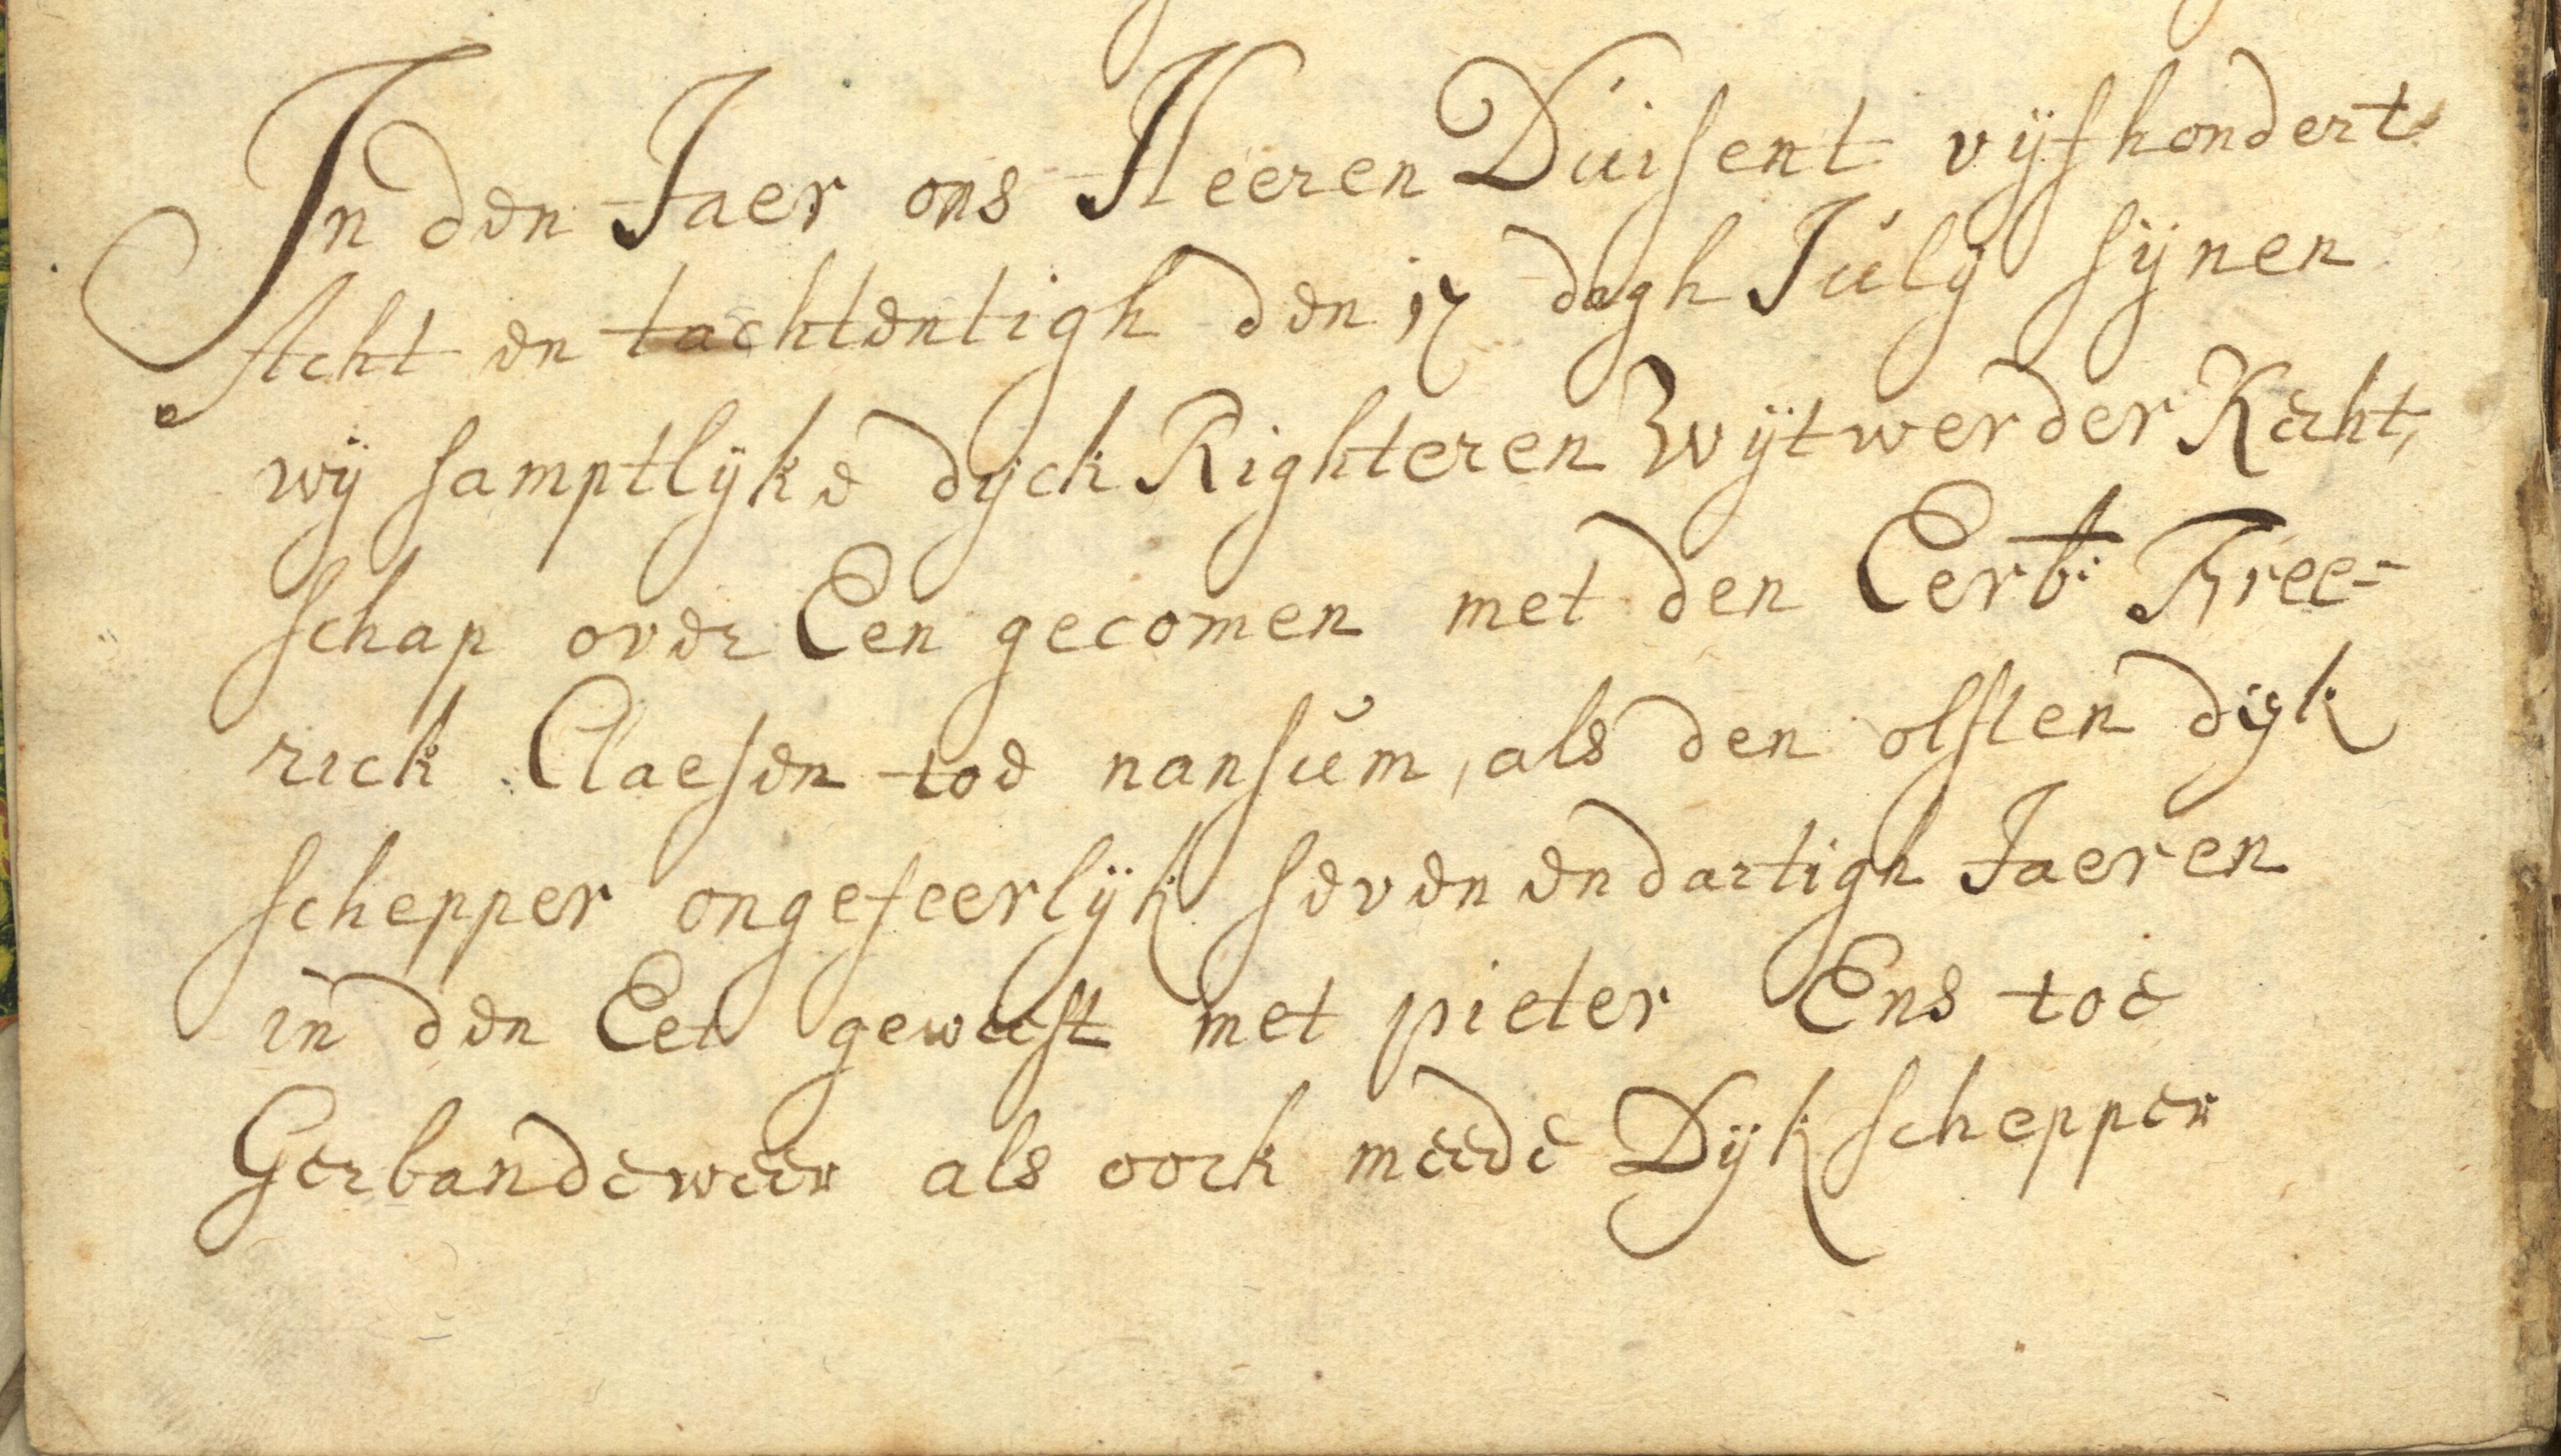 In den Jaer ons Heeren Duisent vijfhondert
Acht en tachtentigh den 17 dagh July sijnen
wij samptlijke dijck Righteren Wijtwerder Kerht,
schap over Een gecomen met den Eerb: Free-
rick Claesen toe nansum, als den olsten dijk
schepper ongefeerlijk seven en dartigh Jaeren
in den Eet geweest met pieter Ens toe
Gerbandeweer als oock meede Dijk schepper